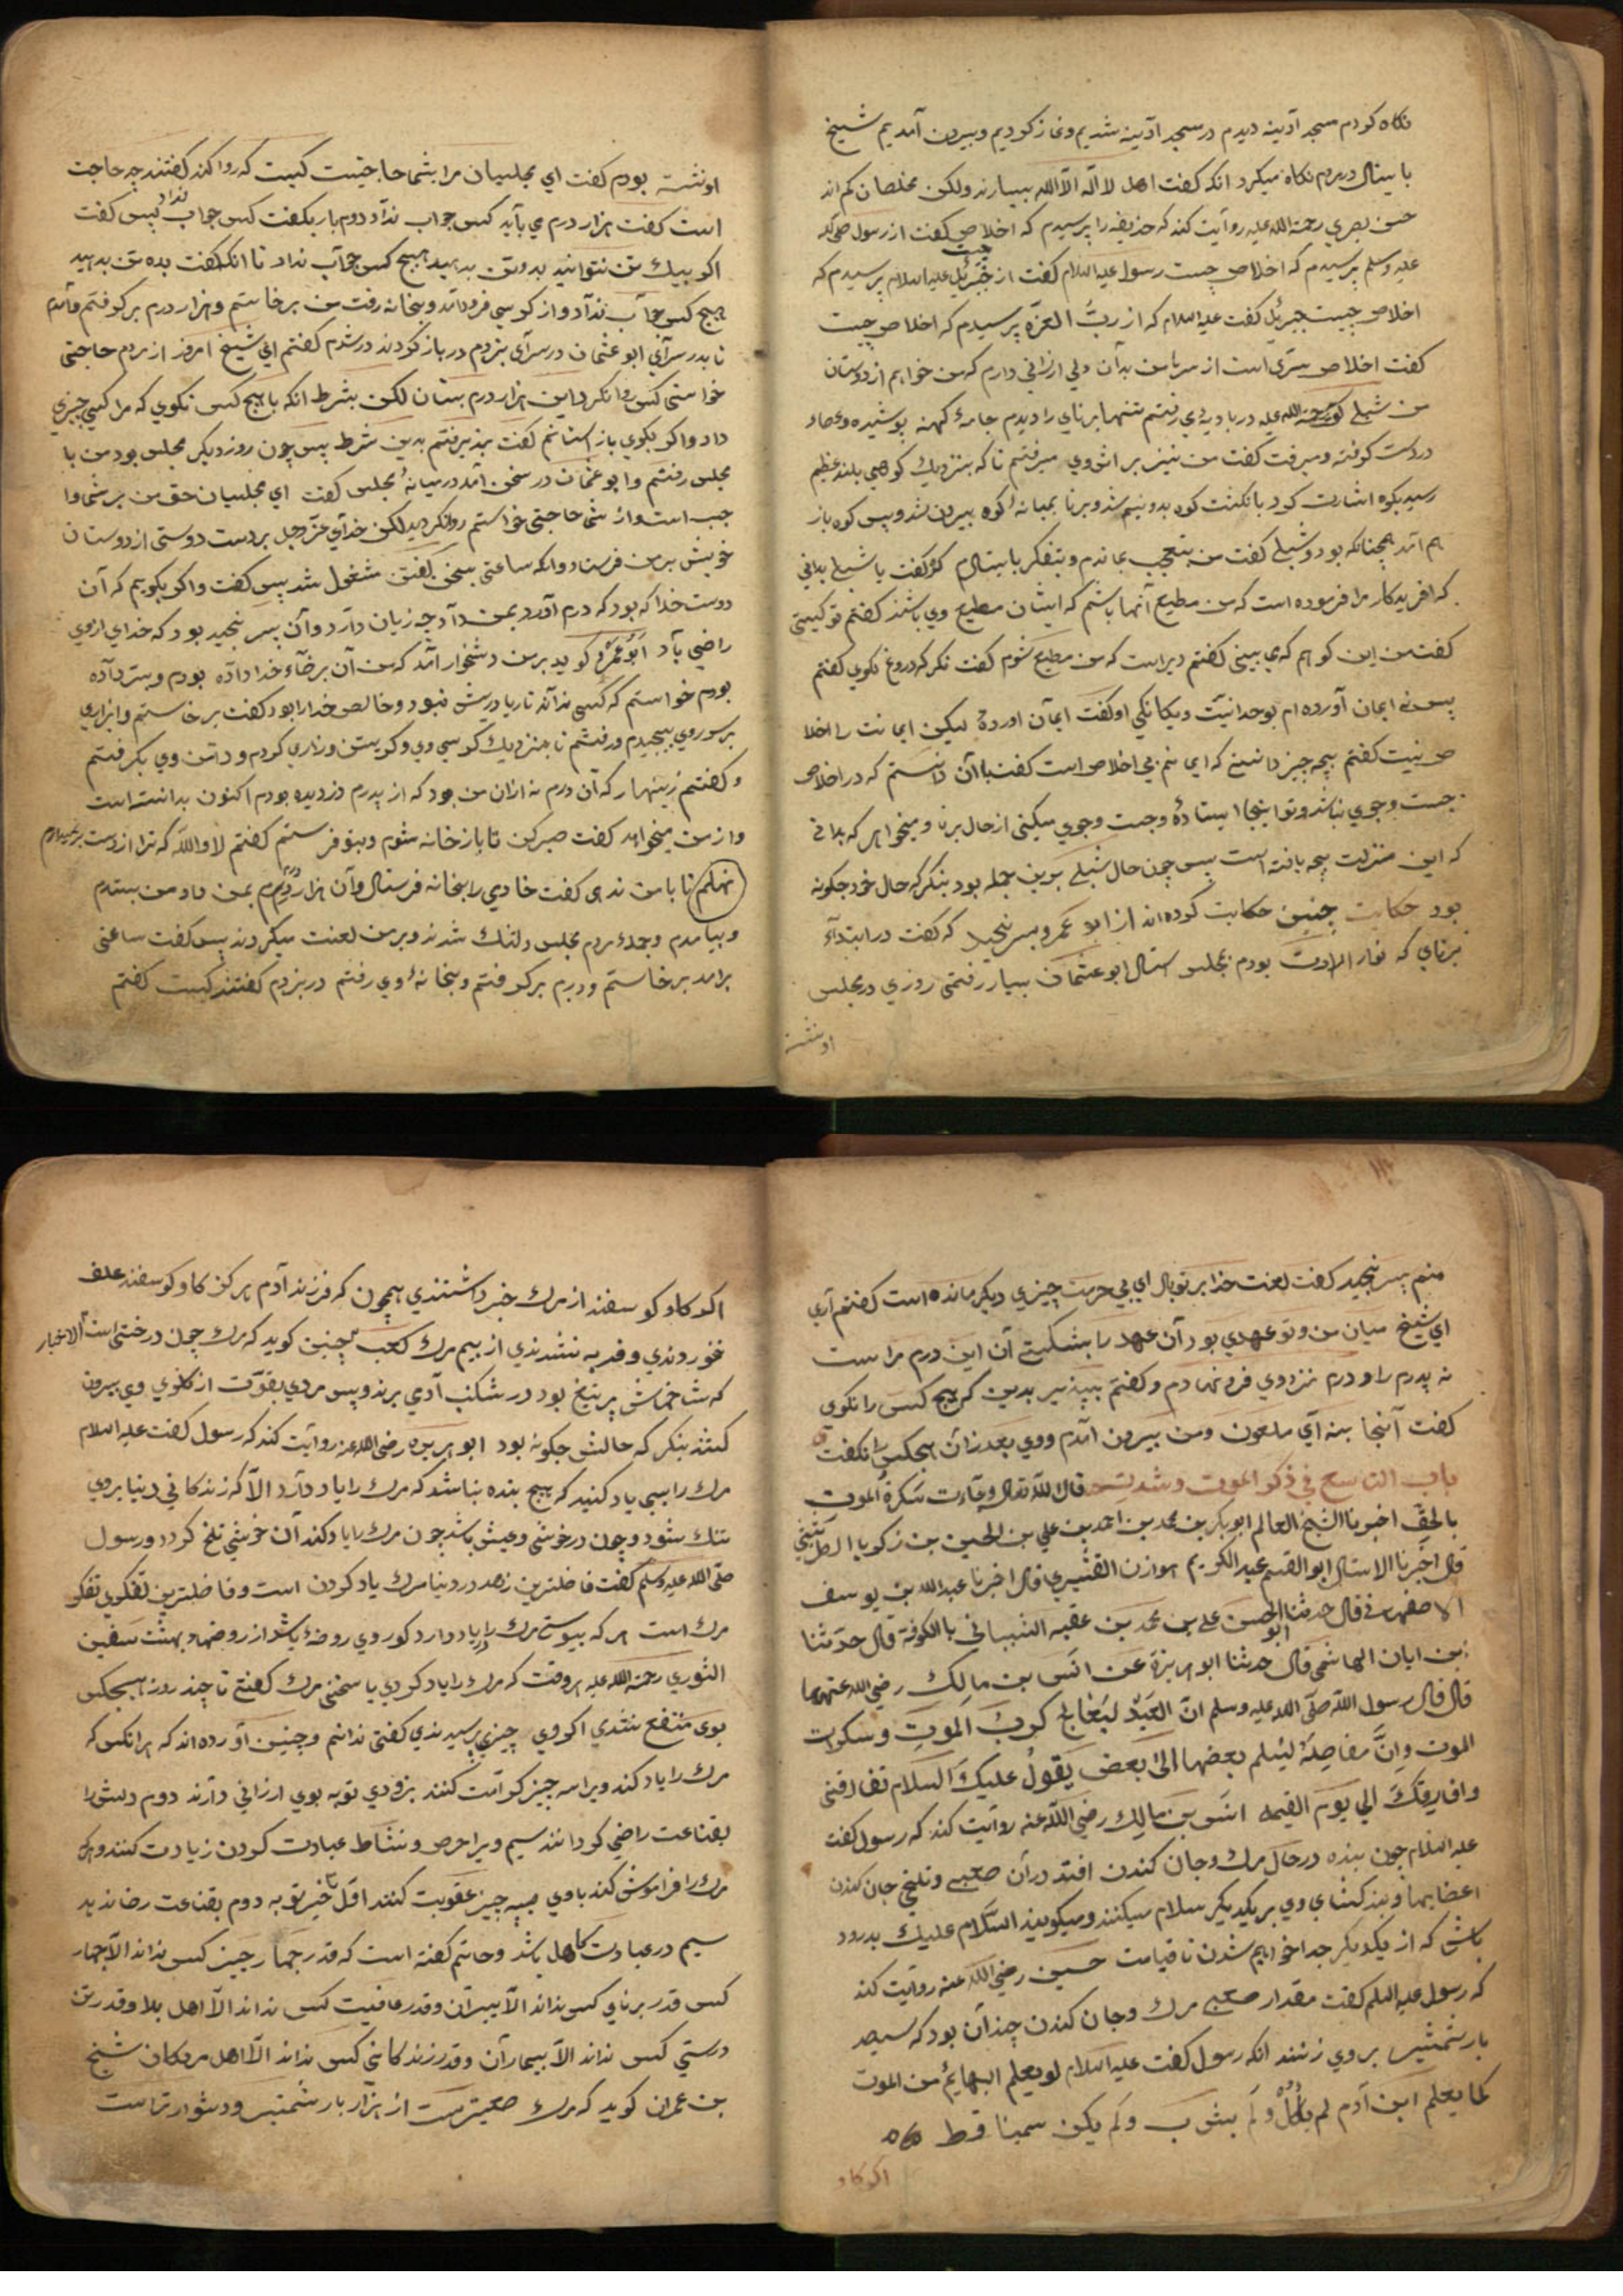 نگاه کودم مسجد آدینه دیدم در مسجد آدینه شدیم و نماز کودیم و بیرون آمدیم شیخ
با ینال در مردم نگاه میکرد انکه گفت اهل لا اله الا الله بسیارند ولکن مخلصان کم اند
حسن بصری رحمة الله علیه روایت کند که حذیفه را پرسیدم که اخلاص چیست گفت از رسول صلی الله
علیه وسلم پرسیدم که اخلاص چیست رسول علیه السلام گفت از جبرئیل علیه السلام پرسیدم که
اخلاص چیست جبرئیل گفت علیه السلام که از رب العزه پرسیدم که اخلاص چیست
گفت اخلاص سری است از سرهای من بدان دلی ارزانی دارم که من خواهم از دوستان
من شبلی گوید رحمة الله علیه در بادیه می رفتم تنها برنای را دیدم جامهٔ کهنه پوشیده و عصاء
در دست کوفته و میرفت گفت من نیز بر اثر وی میرفتم تا که بنزدیک کوهی بلند عظیم
رسید بکوه اشارت کود بانگشت کوه بدو نیم شد و برنا بمیانه کوه بیرون شد و پس کوه باز
هم آمد همچنانکه بود و شبلی گفت من بتعجب بماندم و بتفکر بایستادم گفت یا شبلی بدانی
که افریدکار مرا فرموده است که من مطیع آنها باشم که ایشان مطیع وی باشند گفتم تو کیستی
گفت من این کوهم که می بینی گفتم دیر است که من مطیع شوم گفت نگر که دروغ نگوی گفتم
پس نه ایمان آورده ام بوحدانیت و یکانکی او گفت ایمان اوردهٔ لیکن ایمانت را اخلا
ص نیست گفتم بچه چیز دانستی که ایمانم بی اخلاص است گفت بآن دانستم که در اخلاص
جست و جوی نباشد و تو اینجا ایستادهٔ و جست و جوی میکنی از حال برنا و میخواهی که بدانی
که این منزلت بچه یافته است پس چون حال شبلی برین جمله بود بنگر که حال خود جگونه
بود حکایت چنین حکایت کوده اند از ابو عمرو پسر نجید که گفت در ابتداء
برنای که نو ارادت بودم بمجلس استاد ابو عثمان بسیار رفتمی روزی در مجلس
او نشسته
او نشسته بودم گفت ای مجلسیان مرا بشما حاجتیست کیست که روا کند گفتند چه حاجت
است گفت هزار درم می باید کس جواب نداد دوم بار بگفت کس جواب نداد پس گفت
اکر بیک تن نتوانید بدو تن بدهید هیچ کس جواب نداد تا انکه گفت بده تن بدهید
هیچ کس جواب نداد و از کرسی فرود آمد و بخانه رفت من برخاستم و هزار درم بر کوفتم و آمدم
تا بدر سرای ابو عثمان در سرای بزدم در باز کودند در شدم گفتم ای شیخ امروز از مردم حاجتی
خواستی کس روا نکرد این هزار درم بستان لکن بشرط انکه با هیچ کس نکوی که مرا کسی چیزی
داد و اکر بگوی باز استانم گفت پذیرفتم بدین شرط پس چون روز دیگر مجلس بود من با
مجلس رفتم و ابو عثمان در سخن آمد در میانهٔ مجلس گفت ای مجلسیان حق من بر شما وا
جب است و از شما حاجتی خواستم روا نکردید لکن خدای عز وجل بر دست دوستی از دوستان
خویش بر من فرستاد و انکه ساعتی بسخن گفتن مشغول شد پس گفت و اکر بکویم که آن
دوست خدا که بود که درم آورد بمن داد چه زیان دارد و آن پسر نجید بود که خدای از وی
راضی باد ابو عمرو کوید بر من دشخوار آمد که من آن برضاء خدا داده بودم و بسر داده
بودم خواستم که کسی نداند تا ریا درش نبود و خالص خدا را بود گفت برخاستم و ابزاری
بر سر روی پیچیدم و رفتم تا بنزدیک کرسی وی و کریستن و زاری کردم و دامن وی بگرفتم
و گفتم زینهار که آن درم نه ازان من بود که از پدرم دزدیده بودم اکنون بدانسته است
و از من میخواهد گفت صبر کن تا باز خانه شوم و بتو فرستم گفتم لا والله که ترا از دست بر نمیدارم
نهلم تا با من ندی گفت خادمی را بخانه فرستاد و آن هزار درم بمن داد من بستدم
و بیامدم و جملهٔ مردم مجلس دلتنک شدند و بر من لعنت میکردند پس گفت ساعتی
برامد برخاستم و درم بر کوفتم و بخانهٔ وی رفتم در بزدم گفتند کیست گفتم
منم پسر نجید گفت لعنت خدا بر تو باد ای بی حرمت چیزی دیگر مانده است گفتم آری
ای شیخ میان من و تو عهدی بود آن عهد را بشکستی آن این درم مراست
نه پدرم را و درم نزد وی فرو نهادم و گفتم بپذیر بدین که هیچ کس را نکوی
گفت آنجا بنه ای ملعون و من بیرون آمدم و وی بعد زان هیچکس را نکفت
باب التاسع فی ذکر الموت و شدته قال الله تعالی وجاءت سکرة الموت
بالحق اخبرنا الشیخ العالم ابو بکر بن محمد بن احمد بن علی بن الحسین بن زکریا الطریثیثی
قال اخبرنا الاستاد ابو القسم عبد الکریم هوازن القشیری قال اخبرنا عبد الله بن یوسف
الاصفهانی قال حدثنا ابو الحسن علی بن محمد بن عقبه الشیبانی بالکوفة قال حدثنا
بن ابان الهاشمی قال حدثنا ابو هریرة عن انس بن مالک رضی الله عنهما
قال قال رسول الله صلی الله علیه وسلم ان العبد لیعالج کرب الموت وسکرات
الموت وان مفاصله لیسلم بعضها الی بعض یقول علیک السلام تفارقنی
وافارقک الی یوم القیمه انس بن مالک رضی الله عنه روایت کند که رسول گفت
علیه السلام چون بنده در حال مرک و جان کندن افتد دران صعبی و تلخی جان کندن
اعضایها و بند کشای وی بر یکدیگر سلام میکنند و میکویند السلام علیک بدرود
باش که از یکدیگر جدا خواهیم شدن تا قیامت حسین رضی الله عنه روایت کند
که رسول علیه السلم گفت مقدار صعبی مرک و جان کندن چندان بود که سیصد
بار شمشیر بر وی زنند انکه رسول گفت علیه السلام لو یعلم البهائم من الموت
کما یعلم ابن آدم لم یاکل ولم یشرب ولم یکن سمینا قط
اکر کاو
اکر کاو و کوسفند از مرک خبر داشتندی همچون که فرزند آدم هر کز کاو و کوسفند علف
نخوردندی و فربه نشدندی از بیم مرک کعب الاخبار چنین کوید که مرک چون درختی است
که شاخهاش پر تیغ بود در شکنب آدمی برند و پس مردی بقوت از کلوی وی بیرون
کشد بنکر که حالش جکونه بود ابو هریره رضی الله عنه روایت کند که رسول گفت علیه السلام
مرک را بسی یاد کنید که هیچ بنده نباشد که مرک را یاد دارد الا که زندکانی دنیا بر وی
تنک شود و چون در خوشی و عیش باشد چون مرک را یاد کند آن خوشی تلخ کردد و رسول
صلی الله علیه وسلم گفت فاضلترین زهد در دنیا مرک یاد کودن است و فاضلترین تفکری تفکر
مرک است هر که پیوستی مرک را یاد دارد کور وی روضهٔ باشد از روضهای بهشت سفین
الثوری رحمة الله علیه هر وقت که مرک را یاد کردی یا سخن مرک گفتی تا چند روز هیچکس
بوی منتفع نشدی اکر وی چیزی پرسیدندی گفتی ندانم و چنین آورده اند که هر انکس که
مرک را یاد کند ویرا سه چیز کرامت کنند بزودی توبه بوی ارزانی دارند دوم دلش را
بقناعت راضی کردانند سیم ویرا حرص و نشاط عبادت کودن زیادت کنند و هر که
مرک را فراموش کند با وی بسه چیز عقوبت کنند اول تاخیر توبه دوم بقناعت رضا ندهد
سیم در عبادت کاهل باشد و حاتم گفته است که قدر چهار چیز کس نداند الا چهار
کس قدر برنای کس نداند الا پیران و قدر عافیت کس نداند الا اهل بلا و قدر تن
درستی کس نداند الا بیماران و قدر زندکانی کس نداند الا اهل مردکان شیخ
بن عمران کوید که مرک صعبترست از هزار بار شمشیر و دشوارتر است